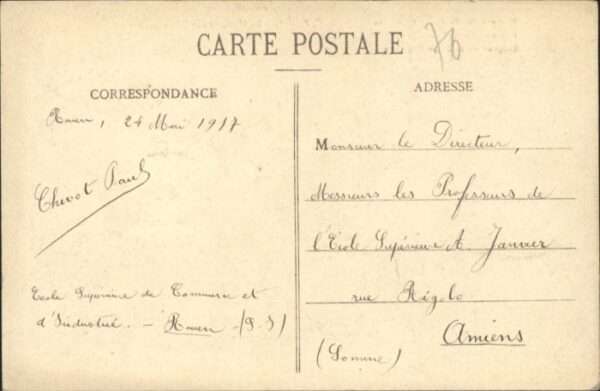 CARTE POSTALE
76
CORRESPONDANCE
ADRESSE
Rouen, 24 Mai 1917
Chivot Paul
Ecole Supérieure de Commerce et
d'Industrie. - Rouen - (S-I)
Monsieur le Directeur,
Messieurs les Professeurs de
l'Ecole Supérieure A. Janvier
rue
Amiens
(Somme)